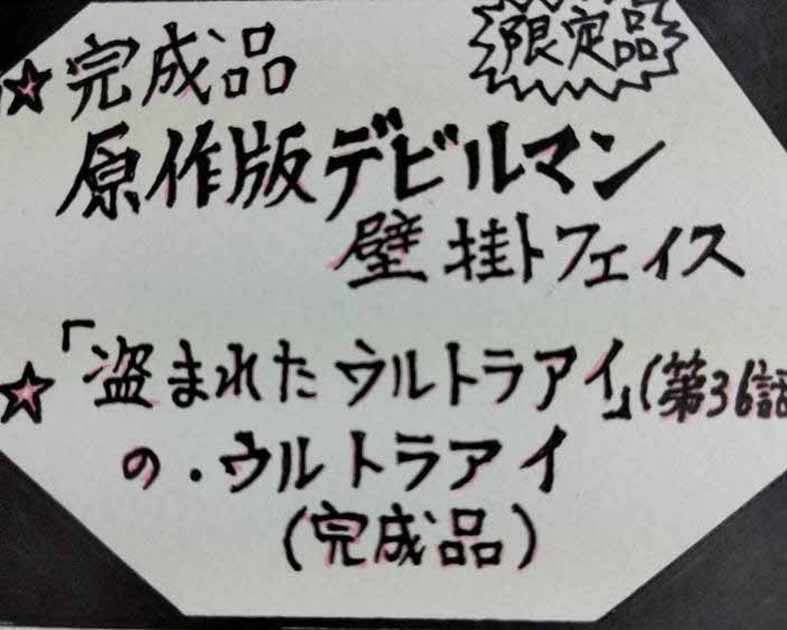 限定品
☆完成品
原作版デビルマン
壁掛フェイス
☆「盗まれたウルトラアイ」(第36話
の・ウルトラアイ
(完成品)